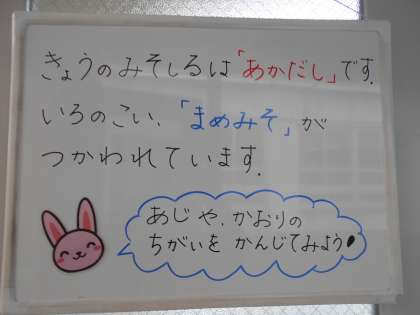 きょうのみそしるは「あかだし」です.
いろのこい、「まめみそ」が
つかわれています.
あじや、かおりの
ちがいをかんじてみよう!